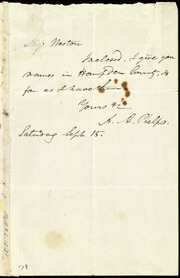 Miss Weston
Inclosed, I give you
names in Hampden County, so
far as I have them
Yours &c
A. A. Phelps
Saturday Sept. 15.